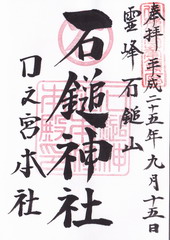 奉拝 平成二十五年九月十五日
霊峰石鎚山
石鎚神社
口之宮本社